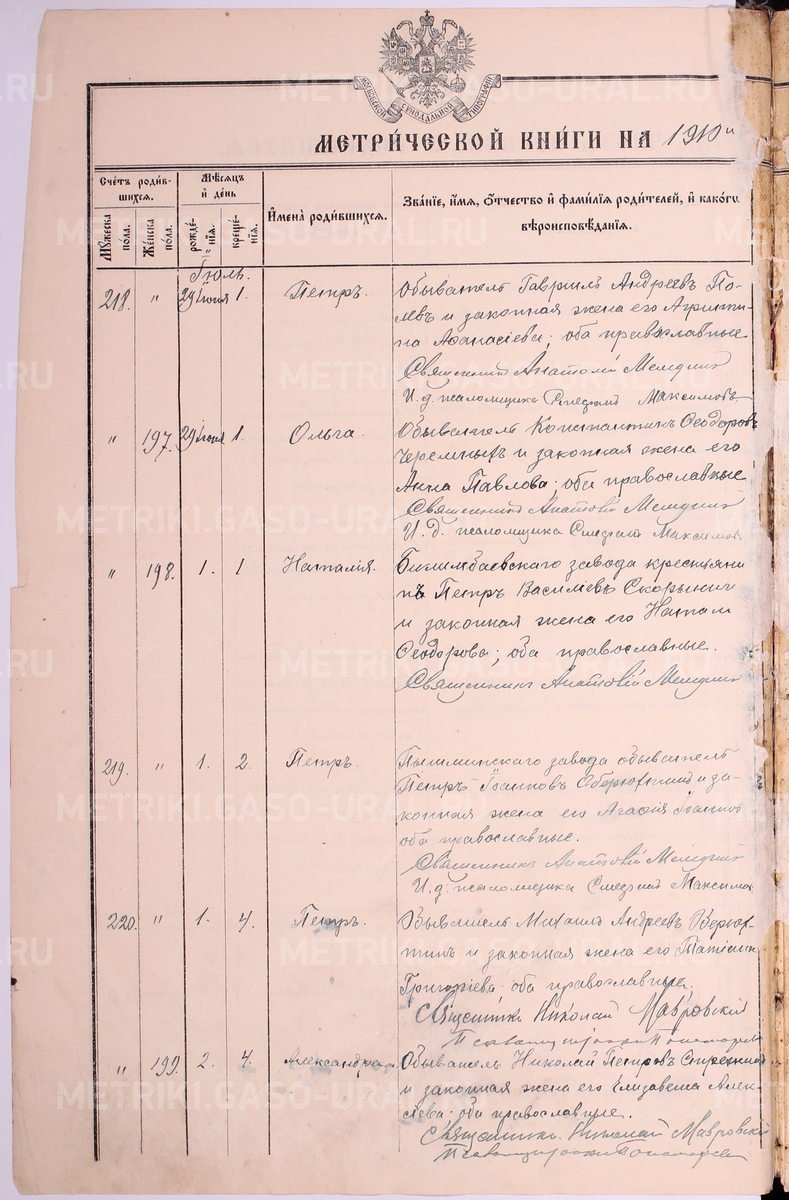 МОСКОВСКОЙ СѴНОДАЛЬНОЙ ТИПОГРАФІИ
МЕТРИ́ЧЕСКОЙ КНИ́ГИ НА 1910
Сче́тъ роди́в-
шихсѧ.
Мꙋ́жеска по́ла.
Же́нска по́ла.
Мѣ́сѧцъ
и҆ де́нь
рожде́-
нїѧ.
креще́-
нїѧ.
И҆мена̀ роди́вшихсѧ.
Зва́нїе, и҆́мѧ, ѻ҆́тчество и҆ фами́лїѧ роди́телей, и҆ како́гѡ
вѣроисповѣ́данїѧ.
Іюль.
218. " 29 іюня 1. Петръ. Обыватель Гавріилъ Андреевъ По-
левъ и законная жена его Агриппи-
на Аѳанасіева; оба православные
Священникъ Анатолій
И. д. псаломщика Максимовъ
" 197. 29 іюня 1. Ольга. Обыватель Константинъ Ѳеодоровъ
Черемныхъ и законная жена его
Анна Павлова; оба православные
Священникъ Анатолій
И. д. псаломщика Максимов
" 198. 1. 1 Наталія. Билимбаевскаго завода крестьяни
нъ Петръ Василіевъ Скорынин
и законная жена его Натал
Ѳеодорова; оба православные.
Священникъ Анатолій
219. " 1. 2. Петръ. Пышминскаго завода обыватель
Петръ Іоанновъ и за-
конная жена его Агаѳія Іоаннов
оба православные.
Священникъ Анатолій
И. д. псаломщика Максимов
220. " 1. 4. Петръ. Обыватель Михаилъ Андреевъ Верюх-
тинъ и законная жена его Татіана
Григоріева; оба православные.
Священникъ Николай Мавровскій
Псаломщикъ Пономарев
" 199. 2. 4. Александра. Обыватель Николай Петровъ
и законная жена его Елизавета Алек-
сіева; оба православные.
Священникъ Николай Мавровскій
Псаломщикъ Пономарев
METRIKI.GASO-URAL.RU